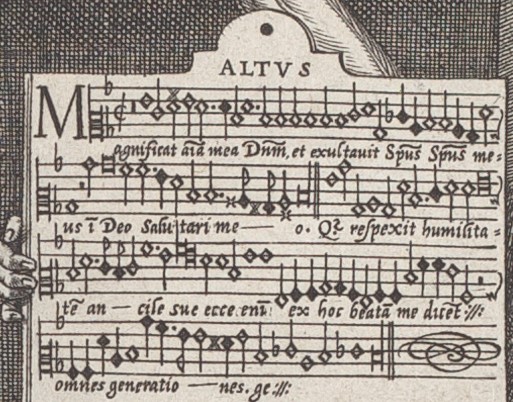 ALTVS
Magnificat aīā mea Dn̄m̄, et exultauit Sp̄us Sp̄us me=
us ī Deo Salutari me — o. Qꝛ respexit humilita=
tē an — cile sue ecce enī: ex hoc beatā me dicēt ://:
omnes generatio — nes. ge ://: